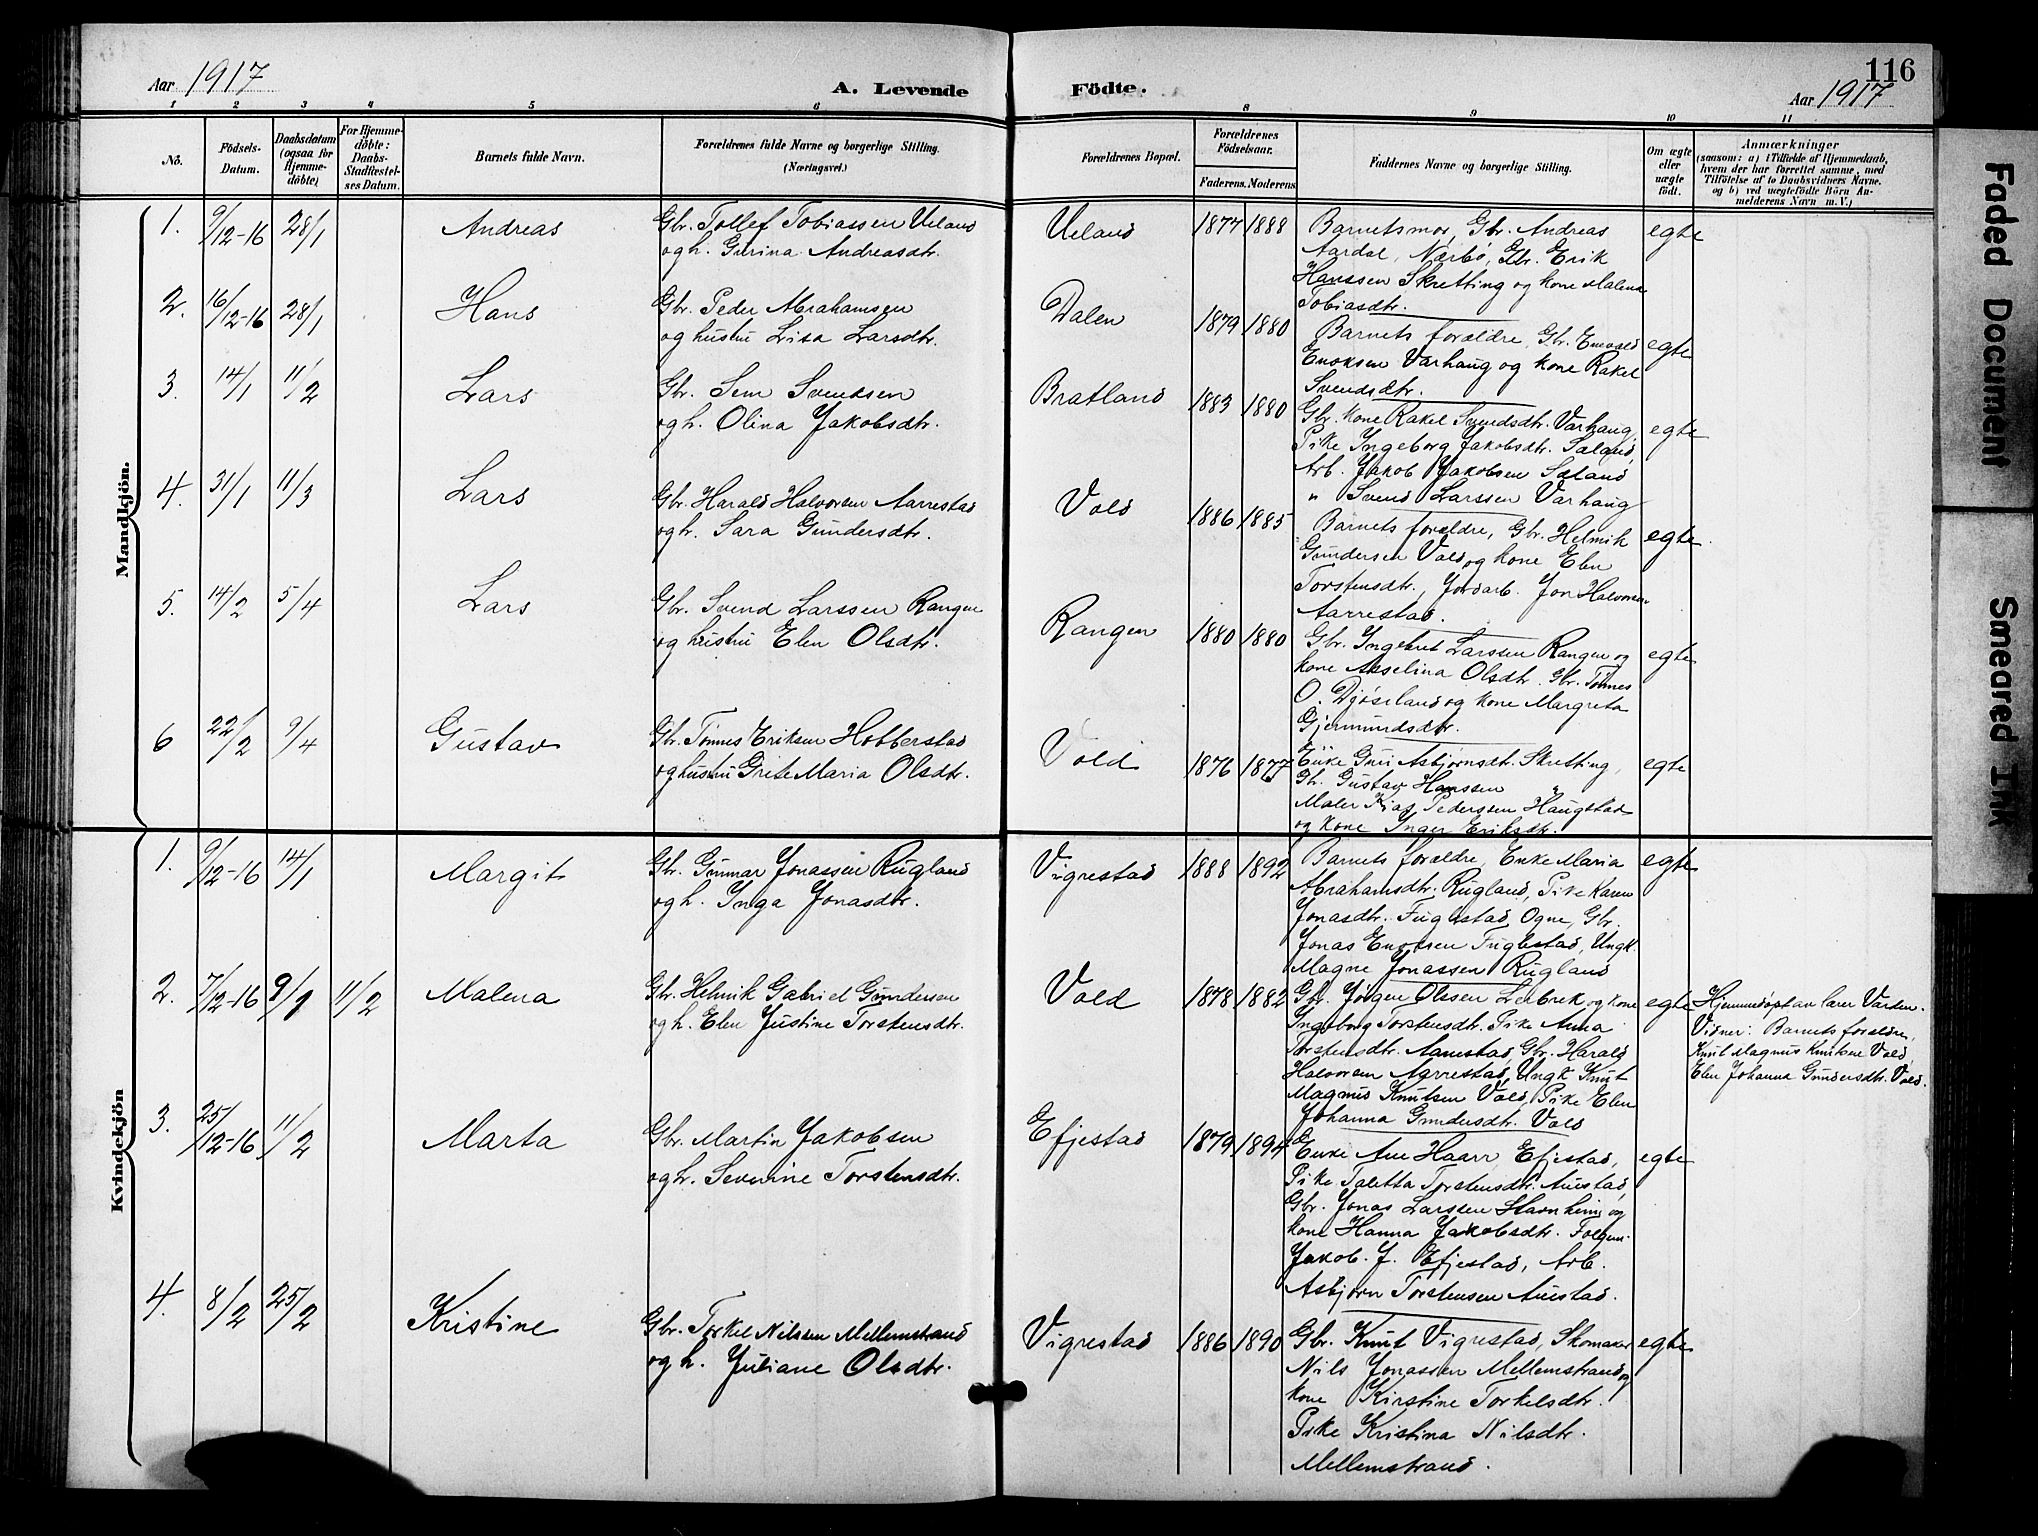 116
Aar 1917
A. Levende
Födte.
Aar 1917
1 2 3 4 5 6 8 9 10 11
Nö.
Födsels-Datum.
Daabsdatum (ogsaa for Hjemmedöbte)
For Hjemmedöbte: Daabs-Stadfestelses Datum.
Barnets fulde Navn.
Forældrenes fulde Navne og borgerlige Stilling. (Næringsvei.)
Forældrenes Bopæl.
Forældrenes Födselsaar.
Faderens. Moderens.
Faddernes Navne og borgerlige Stilling.
Om ægte eller uægte födt.
Anmærkninger
(saasom: a) i Tilfælde af Hjemmedaab,
hvem der har forrettet samme, med
Tilföielse af to Daabsvidners Navne,
og b) ved uægtefödte Börn An-
melderens Navn m. V.)
Mandkjön.
1. 9/12-16 28/1 Andreas
Gbr. Tollef Tobiassen Ueland
og h. Gurina Andreasdtr.
Ueland 1877 1888
Barnets mor, Gbr. Andreas
Aardal, Nærbö, Gbr. Erik
Hanssen Skretting og kone Malena
Tobiasdtr.
egte
2. 16/12-16 28/1 Hans
Gbr. Peder Abrahamsen
og hustru Lisa Larsdtr.
Dalen 1879 1880
Barnets forældre, Gbr. Enevald
Enoksen Varhaug og kone Rakel
Svendsdtr.
egte
3. 14/1 11/2 Lars
Gbr. Sem Svendsen
og h. Olina Jakobsdtr.
Bratland 1883 1880
Gbr. kone Rakel Svendsdtr. Varhaug,
Pike Ingeborg Jakobsdtr. Sæland
Arb. Jakob Jakobsen Sæland
" Svend Larssen Varhaug
egte
4. 31/1 11/3 Lars
Gbr. Harald Halvorsen Aarrestad
og h. Sara Gundersdtr.
Vold 1886 1885
Barnets forældre, Gbr. Helmik
Gundersen Vold og kone Elen
Torstensdtr., Jordarb. Jon Halvorsen
Aarrestad.
egte.
5. 14/2 5/4 Lars
Gbr. Svend Larssen Rangen
og hustru Elen Olsdtr.
Rangen 1880 1880
Gbr. Ingebret Larssen Rangen og
kone Akselina Olsdtr. Gbr. Tönnes
O. Djøseland og kone Margreta
Gjermundsdtr.
egte
6 22/2 9/4 Gustav
Gbr. Tönnes Eriksen Hobberstad
og hustru Grete Maria Olsdtr.
Vold 1876 1877
Enke Guri Asbjørnsdt. Skretting,
Gbr. Gustav Hanssen "
Maler Kias Pederssen Haugstad
og kone Inger Eriksdtr.
egte
Kvindekjön
1. 9/12-16 14/1 Margit
Gbr. Gunnar Jonassen Rugland
og h. Inga Jonasdtr.
Vigrestad 1888 1892
Barnets forældre, Enke Maria
Abrahamsdtr. Rugland, Pike Karen
Jonasdtr. Fuglestad, Ogne, Gbr.
Jonas Enoksen Fuglestad, Ungk.
Magne Jonassen Rugland
egte
2. 7/12-16 9/1 11/2 Malena
Gbr. Helmik Gabriel Gundersen
og h. Elen Justine Torstensdtr.
Vold 1878 1882
Gbr. Jörgen Olsen Leibrek og kone
Ingeborg Torstensdtr. Pike Anna
Torstensdtr. Aanestad, Gbr. Harald
Halvorsen Aarrestad, Ungk Knut
Magnus Knutsen Vold, Pike Elen
Johanna Gundersdtr. Vold
egte
Hjemmedöpt av lærer Varden.
Vidner: Barnets forældre,
Knut Magnus Knutsen Vold,
Elen Johanna Gundersdtr. Vold.
3. 25/12-16 11/2 Marta
Gbr. Martin Jakobsen
og h. Severine Torstensdtr.
Efjestad 1879 1894
Enke Ane Haarr Efjestad,
Pike Taletta Torstensdtr. Auestad,
Gbr. Jonas Larssen Stavnheim og
kone Hanna Jakobsdtr.
Jakob. J. Efjestad, Arb.
Asbjörn Torstensen Auestad.
egte
4. 8/2 25/2 Kristine
Gbr. Torkel Nilsen Mellemstrand
og h. Juliane Olsdtr.
Vigrestad 1886 1890
Gbr. Knut Vigrestad, Skomaker
Nils Jonassen Mellemstrand og
kone Kirstine Torkelsdtr.
Pike Kristina Nilsdtr.
Mellemstrand.
egte
Faded Document
Smeared Ink